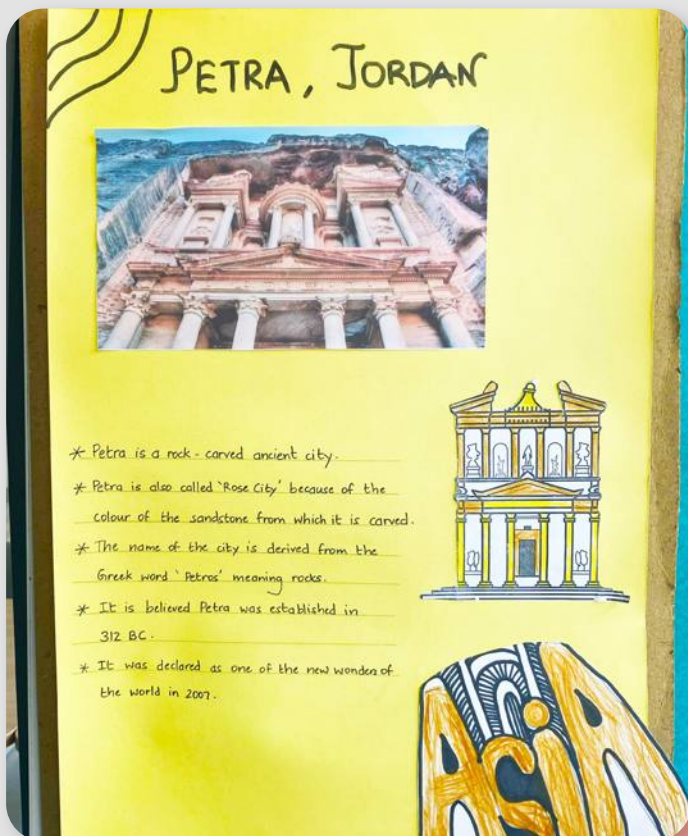 PETRA, JORDAN
* Petra is a rock-carved ancient city.
* Petra is also called 'Rose City' because of the
colour of the sandstone from which it is carved.
* The name of the city is derived from the
Greek word 'Petros' meaning rocks.
* It is believed Petra was established in
312 BC.
* It was declared as one of the new wonders of
the world in 2007.
ASiA